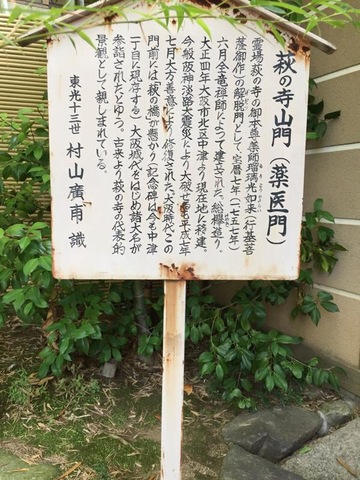 萩の寺山門（薬医門）
霊場萩の寺の御本尊薬師瑠璃光如来（行基菩
薩御作）の解脱門として、宝暦七年（一七五七年）
六月全竜禅師によって建立された総欅造り。
大正四年大阪市北区中津より現在地に移建。
今般阪神淡路大震災により大破せるも平成七年
七月大方の善意により修復された。大阪時代この
門前には「萩の橋」が懸かり（記念碑は今も中津
一丁目に現存する）大阪城代をはじめ諸大名が
参詣されたとゆう。古来より萩の寺の代表的
景観として親しまれている。
東光十三世 村山廣甫 識